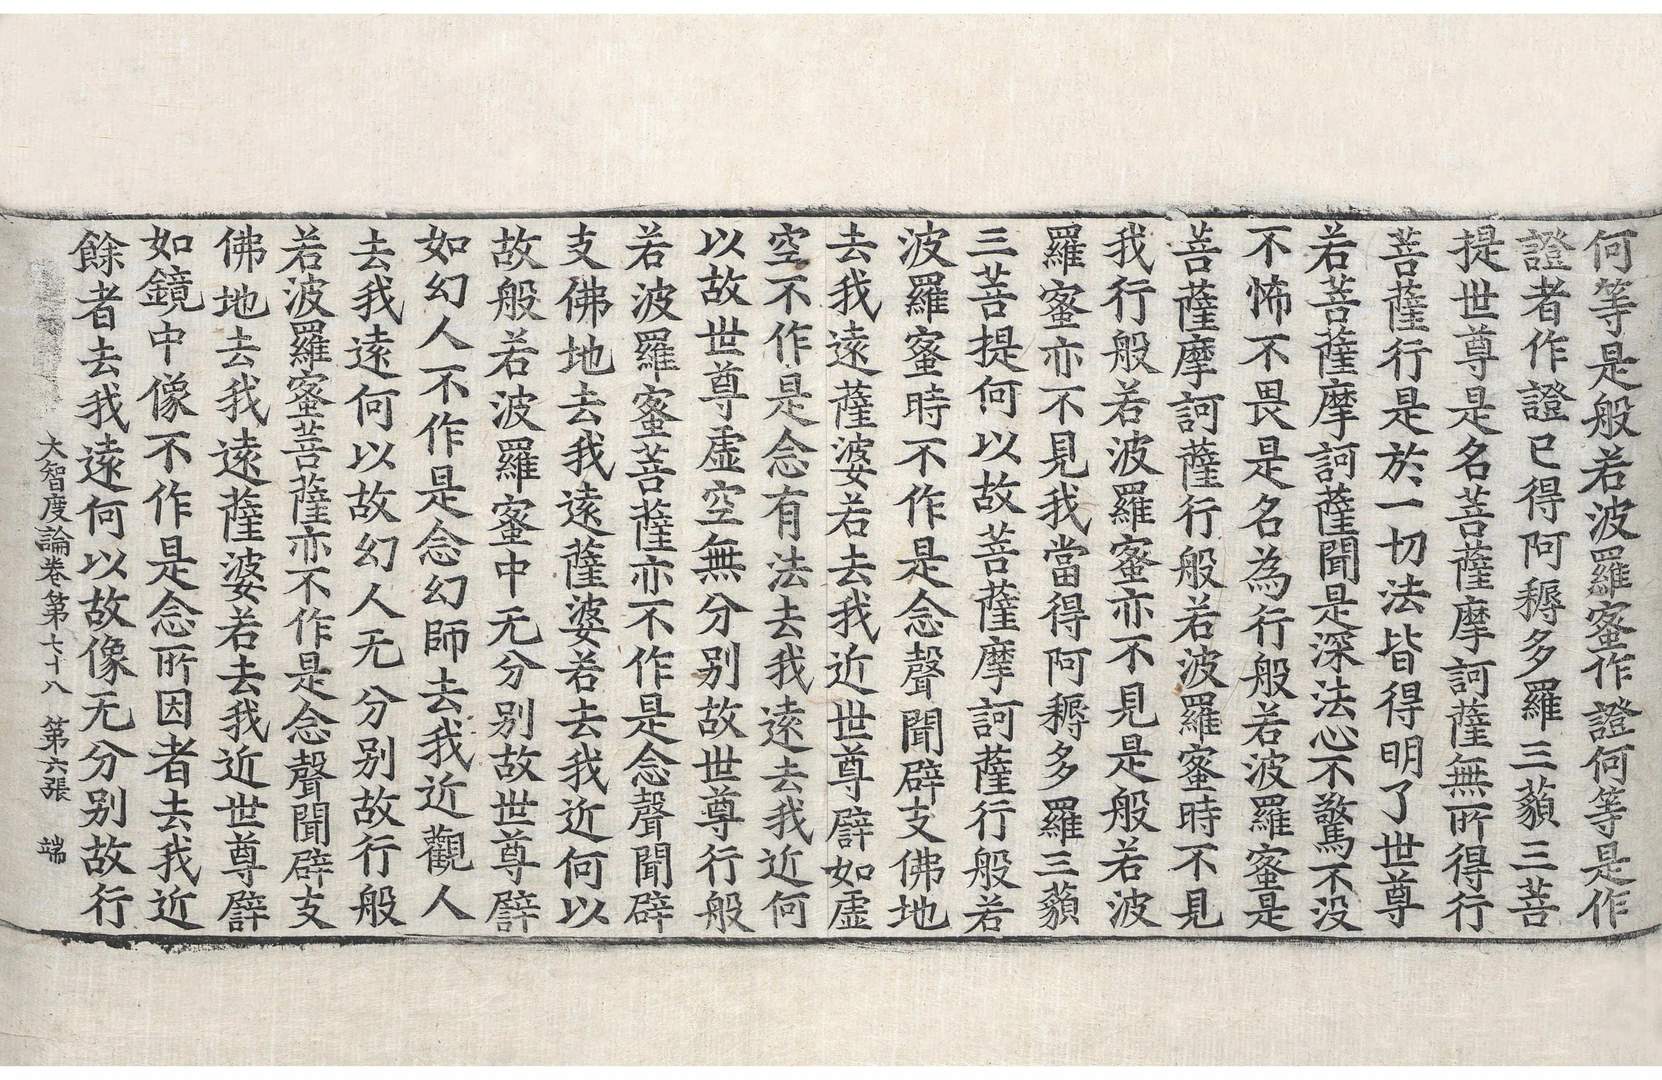 何等是般若波羅蜜作證何等是作
證者作證已得阿耨多羅三藐三菩
提世尊是名菩薩摩訶薩無所得行
菩薩行是於一切法皆得明了世尊
若菩薩摩訶薩聞是深法心不驚不没
不怖不畏是名為行般若波羅蜜是
菩薩摩訶薩行般若波羅蜜時不見
我行般若波羅蜜亦不見是般若波
羅蜜亦不見我當得阿耨多羅三藐
三菩提何以故菩薩摩訶薩行般若
波羅蜜時不作是念聲聞辟支佛地
去我遠薩婆若去我近世尊譬如虛
空不作是念有法去我遠去我近何
以故世尊虛空無分别故世尊行般
若波羅蜜菩薩亦不作是念聲聞辟
支佛地去我遠薩婆若去我近何以
故般若波羅蜜中无分别故世尊譬
如幻人不作是念幻師去我近觀人
去我遠何以故幻人无分别故行般
若波羅蜜菩薩亦不作是念聲聞辟支
佛地去我遠薩婆若去我近世尊譬
如鏡中像不作是念所因者去我近
餘者去我遠何以故像无分别故行
大智度論卷第七十八 第六張 端